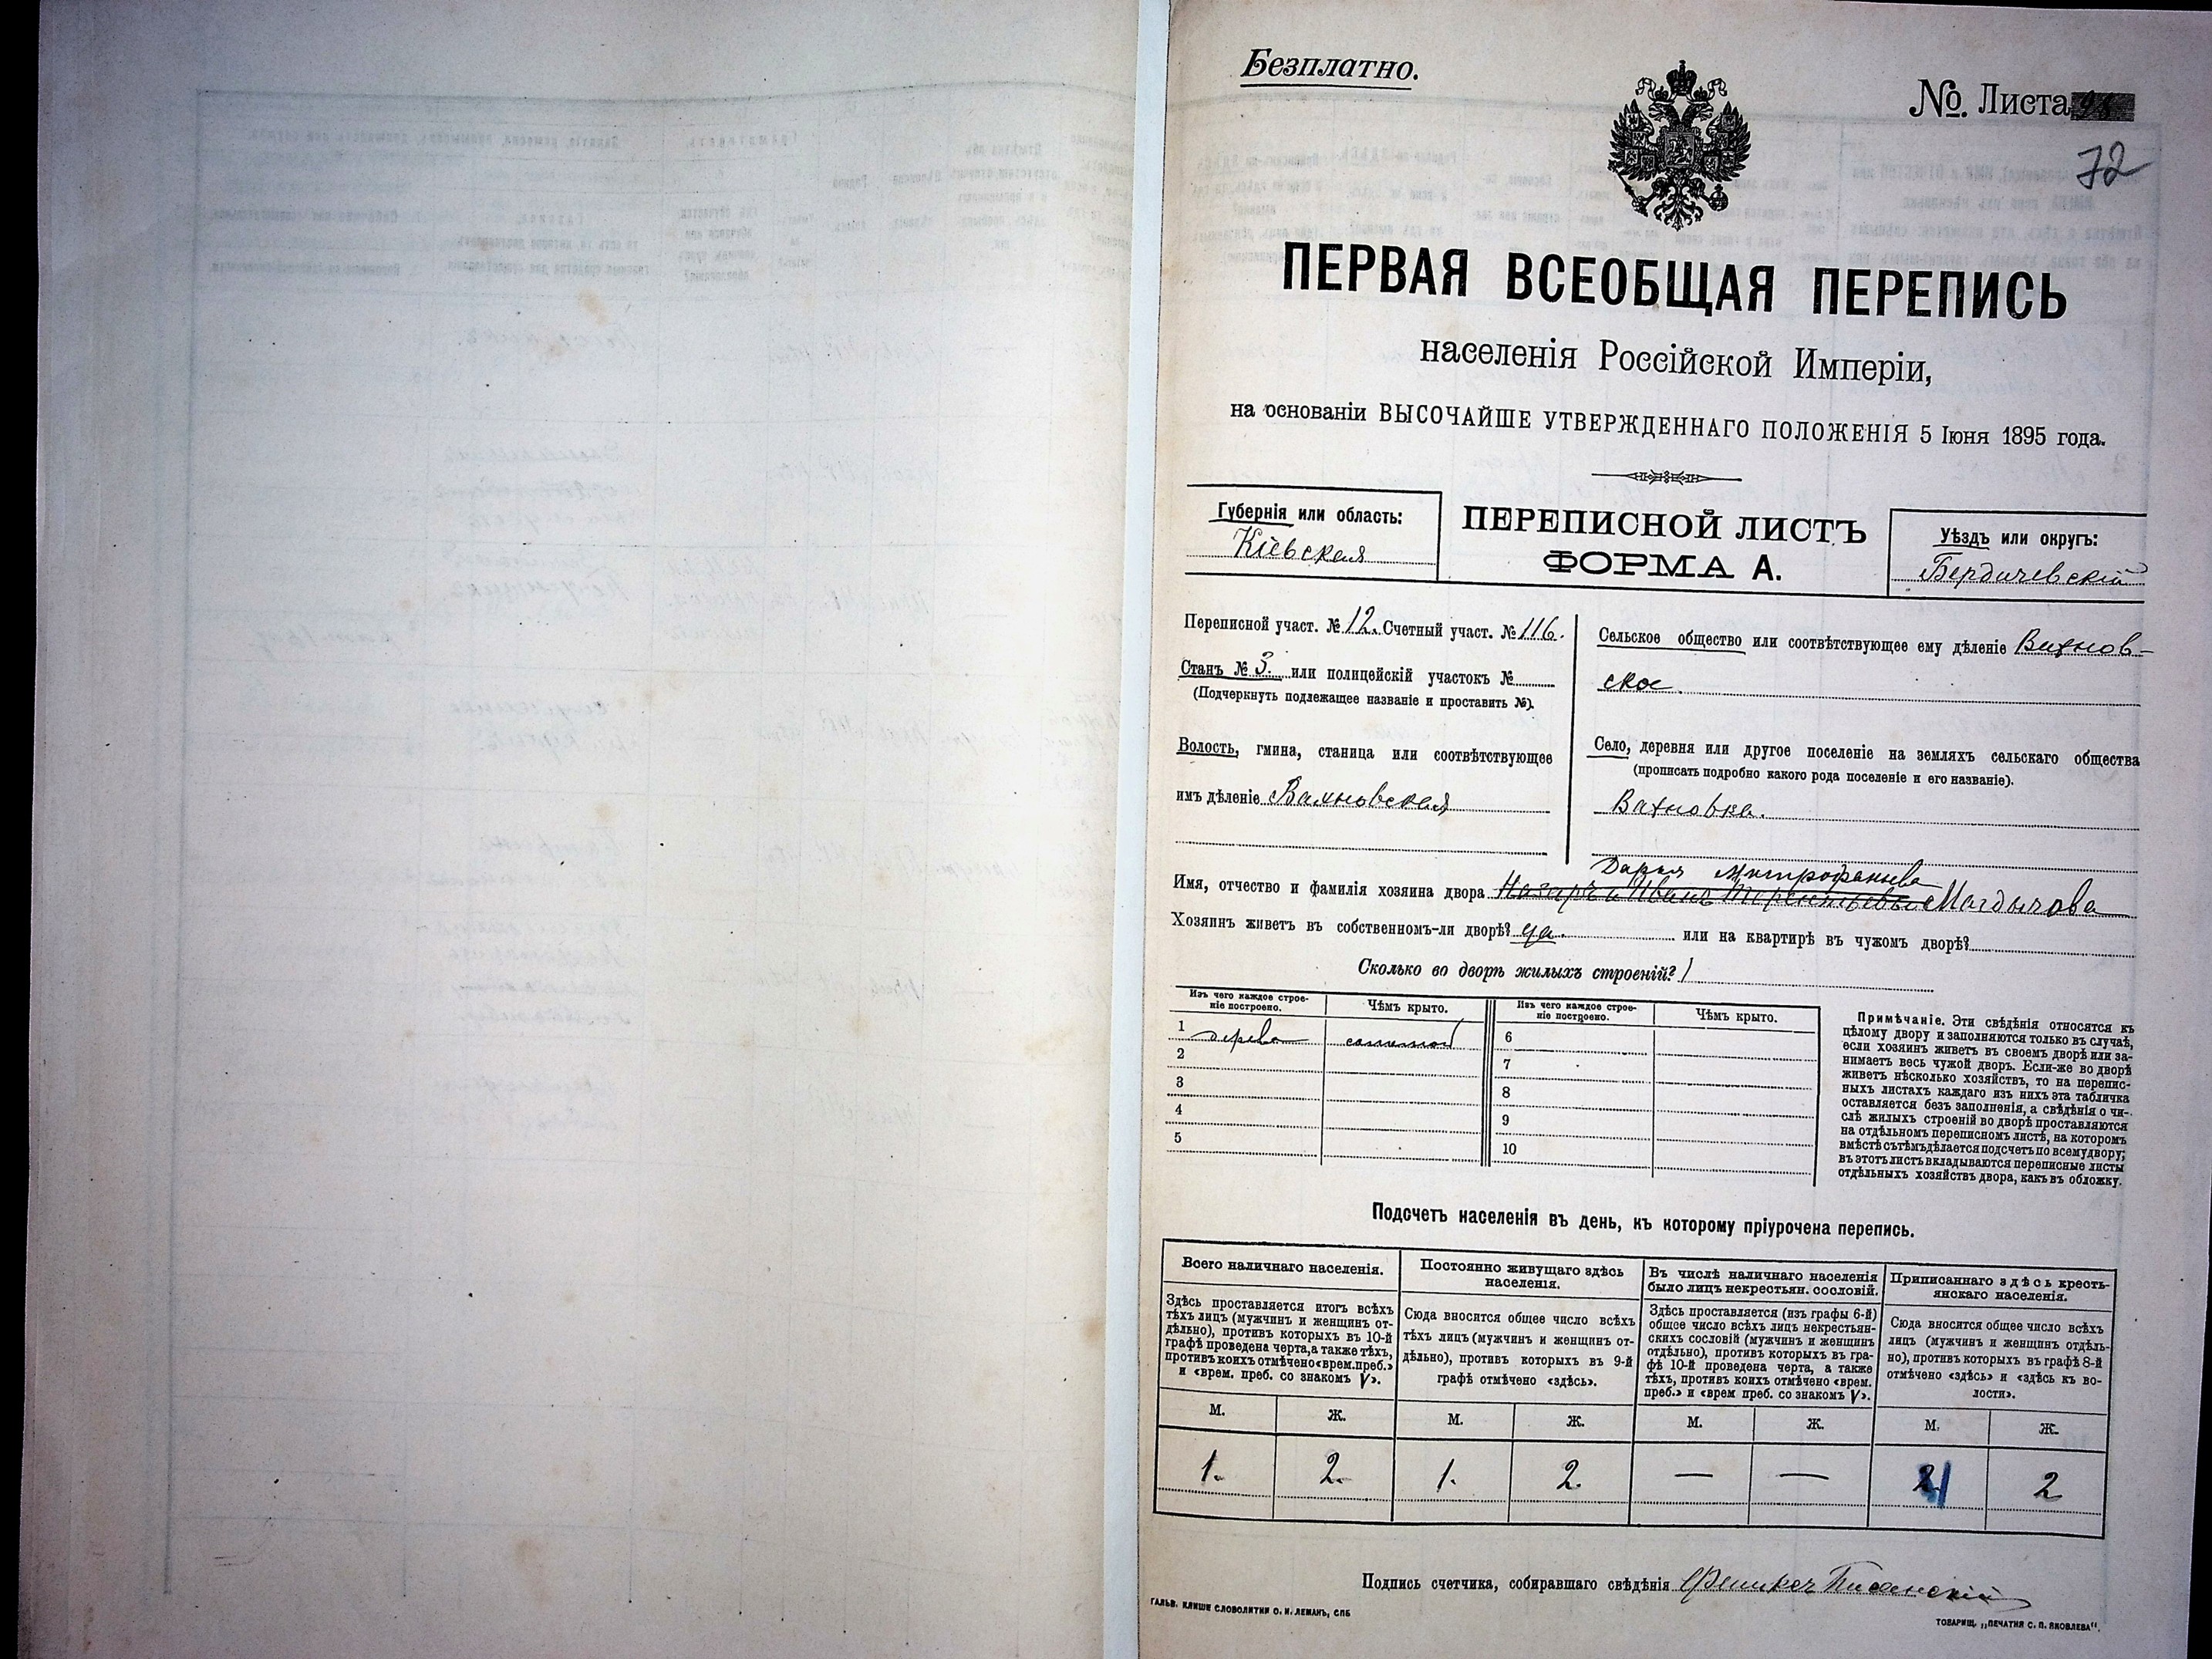 Безплатно.
№. Листа
72
ПЕРВАЯ ВСЕОБЩАЯ ПЕРЕПИСЬ
населенія Россійской Имперіи,
на основаніи ВЫСОЧАЙШЕ УТВЕРЖДЕННАГО ПОЛОЖЕНІЯ 5 Іюня 1895 года.
Губернія или область:
Кіевская
ПЕРЕПИСНОЙ ЛИСТЪ
ФОРМА А.
Уѣздъ или округъ:
Бердичевскій
Переписной участ. № 12. Счетный участ. № 116.
Станъ № 3. или полицейскій участокъ №
(Подчеркнуть подлежащее названіе и проставить №).
Волость, гмина, станица или соотвѣтствующее
имъ дѣленіе Вахновская
Сельское общество или соотвѣтствующее ему дѣленіе Вахнов-
ское.
Село, деревня или другое поселеніе на земляхъ сельскаго общества
(прописать подробно какого рода поселеніе и его названіе).
Вахновка.
Дарья Митрофанова
Имя, отчество и фамилія хозяина двора Назаръ и Иванъ Терентьевы Магдычова
Хозяинъ живетъ въ собственномъ-ли дворѣ? да. или на квартирѣ въ чужомъ дворѣ?
Сколько во дворѣ жилыхъ строеній? 1
Изъ чего каждое строе-
ніе построено.
Чѣмъ крыто.
Изъ чего каждое строе-
ніе построено.
Чѣмъ крыто.
1 дерева соломой 6
2 7
3 8
4 9
5 10
Примѣчаніе. Эти свѣдѣнія относятся къ
цѣлому двору и заполняются только въ случаѣ,
если хозяинъ живетъ въ своемъ дворѣ или за-
нимаетъ весь чужой дворъ. Если-же во дворѣ
живетъ нѣсколько хозяйствъ, то на перепис-
ныхъ листахъ каждаго изъ нихъ эта табличка
оставляется безъ заполненія, а свѣдѣнія о чи-
слѣ жилыхъ строеній во дворѣ проставляются
на отдѣльномъ переписномъ листѣ, на которомъ
вмѣстѣ съ тѣмъ дѣлается подсчетъ по всему двору;
въ этотъ листъ вкладываются переписные листы
отдѣльныхъ хозяйствъ двора, какъ въ обложку.
Подсчетъ населенія въ день, къ которому пріурочена перепись.
Всего наличнаго населенія.
Здѣсь проставляется итогъ всѣхъ
тѣхъ лицъ (мужчинъ и женщинъ от-
дѣльно), противъ которыхъ въ 10-й
графѣ проведена черта, а также тѣхъ,
противъ коихъ отмѣчено «врем. преб.»
и «врем. преб. со знакомъ V».
Постоянно живущаго здѣсь
населенія.
Сюда вносится общее число всѣхъ
тѣхъ лицъ (мужчинъ и женщинъ от-
дѣльно), противъ которыхъ въ 9-й
графѣ отмѣчено «здѣсь».
Въ числѣ наличнаго населенія
было лицъ некрестьян. сословій.
Здѣсь проставляется (изъ графы 6-й)
общее число всѣхъ лицъ некрестьян-
скихъ сословій (мужчинъ и женщинъ
отдѣльно), противъ которыхъ въ гра-
фѣ 10-й проведена черта, а также
тѣхъ, противъ коихъ отмѣчено «врем.
преб.» и «врем преб. со знакомъ V».
Приписаннаго здѣсь кресть-
янскаго населенія.
Сюда вносится общее число всѣхъ
лицъ (мужчинъ и женщинъ отдѣль-
но), противъ которыхъ въ графѣ 8-й
отмѣчено «здѣсь» и «здѣсь къ во-
лости».
М. Ж. М. Ж. М. Ж. М. Ж.
1. 2. 1. 2. — — 1 2
Подпись счетчика, собиравшаго свѣдѣнія
ГАЛЬВ. КЛИШЕ СЛОВОЛИТНИ О. И. ЛЕМАНЪ, СПБ
ТОВАРИЩ. „ПЕЧАТНЯ С. П. ЯКОВЛЕВА“.